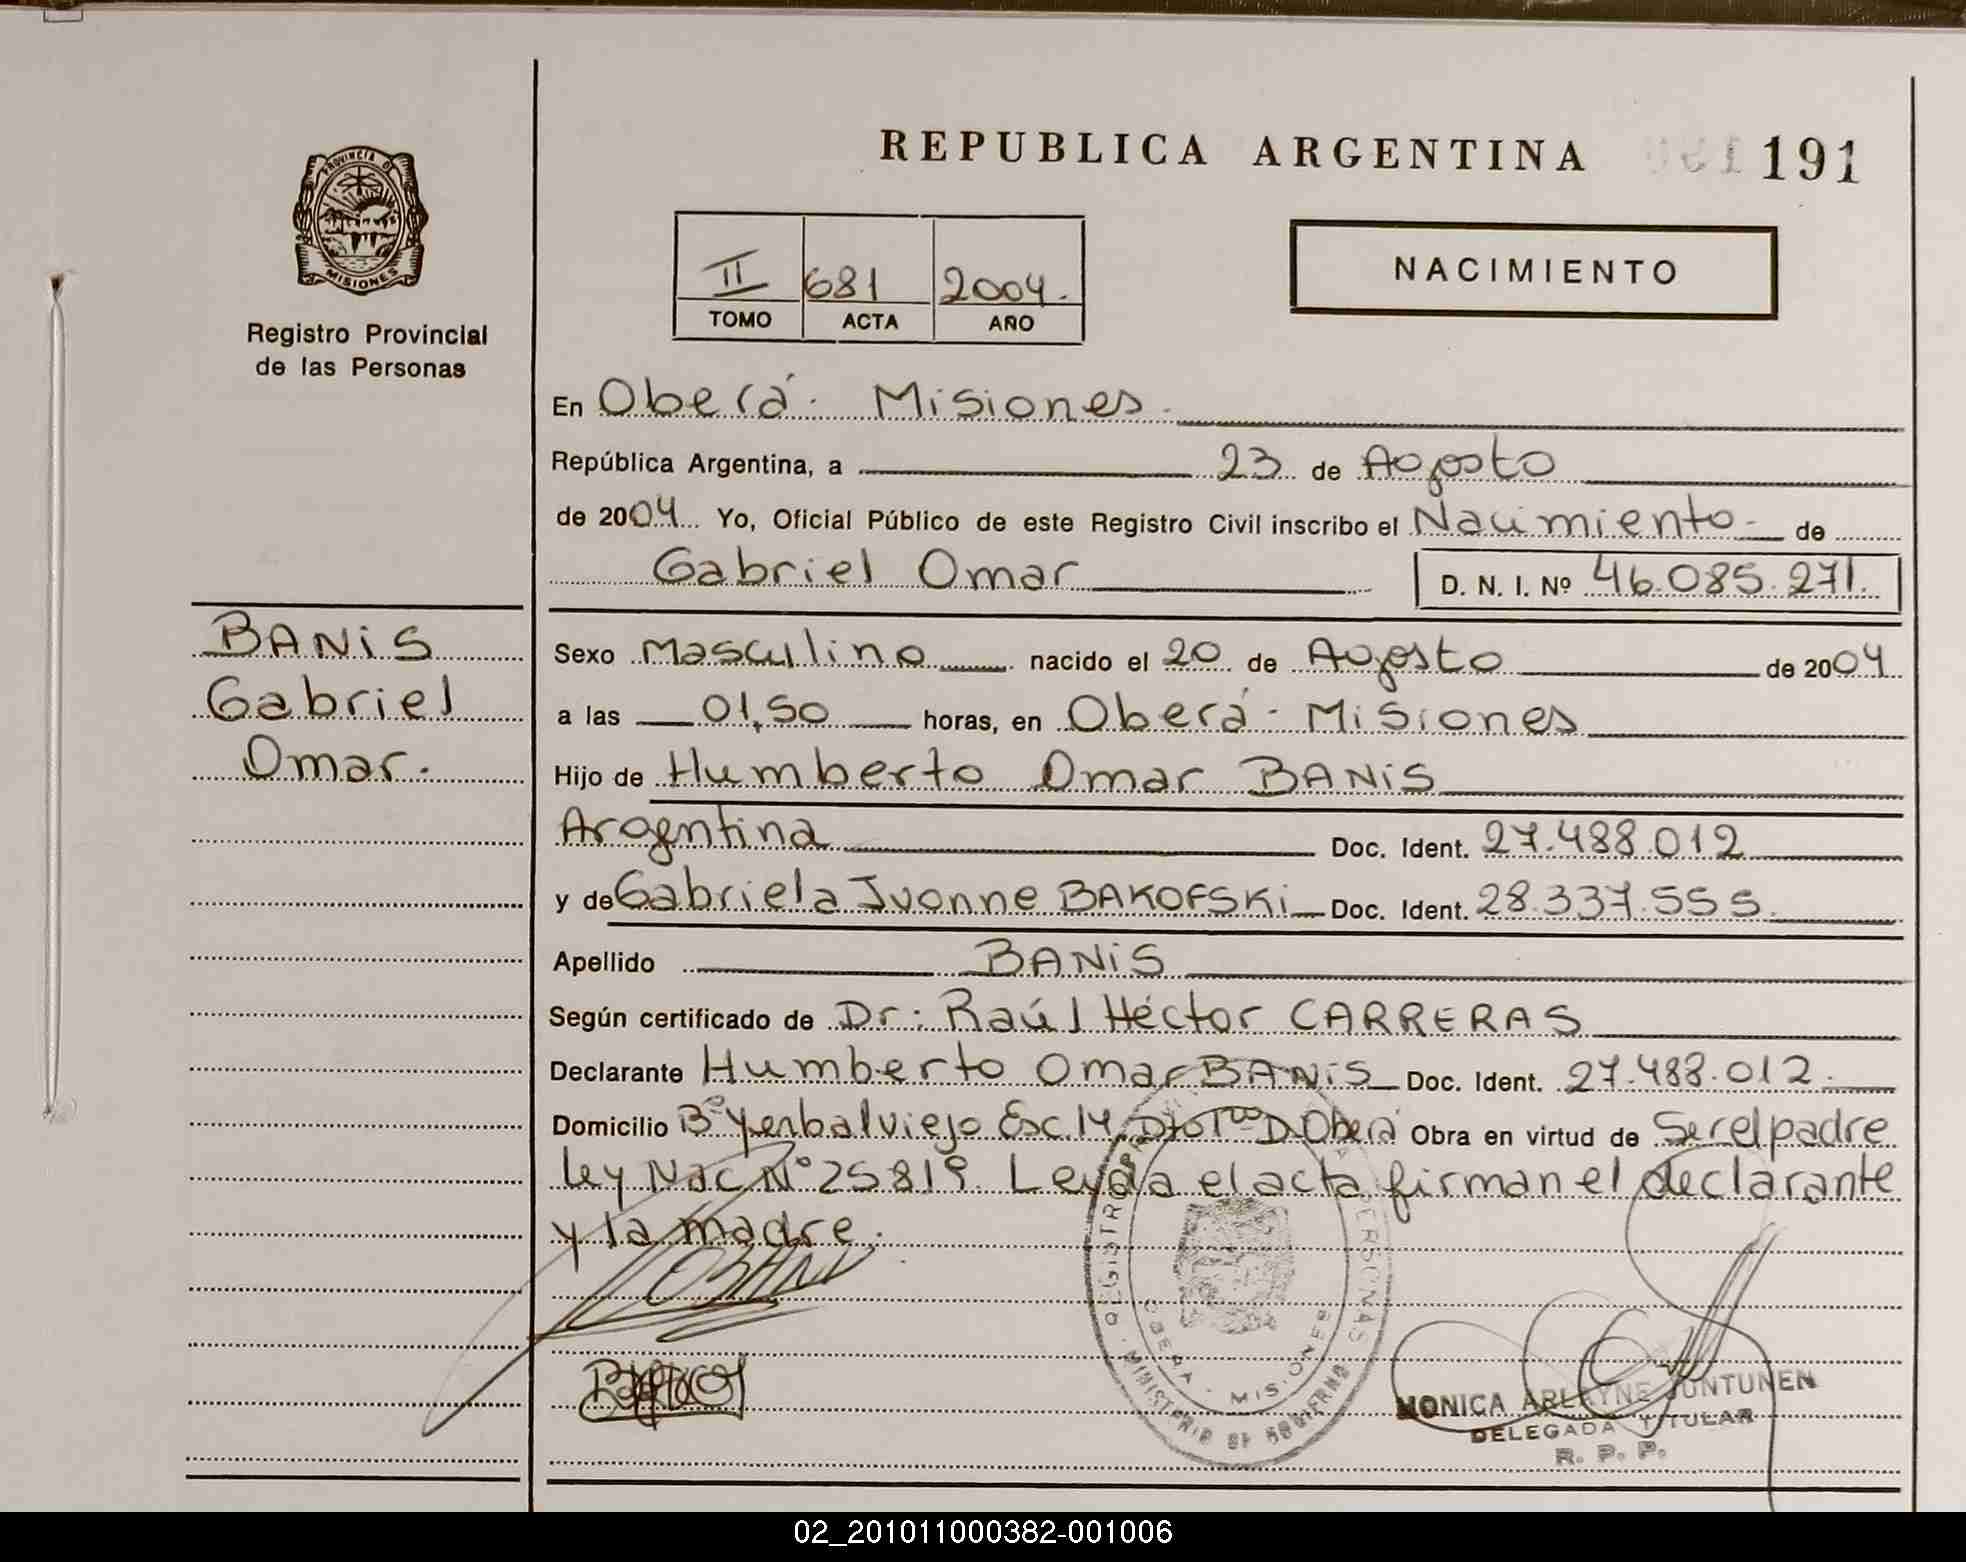 REPUBLICA ARGENTINA 191
PROVINCIA DE
MISIONES
Registro Provincial
de las Personas
II 681 2004.
TOMO ACTA AÑO
NACIMIENTO
En Oberá - Misiones
República Argentina, a 23 de Agosto
de 2004 Yo, Oficial Público de este Registro Civil inscribo el Nacimiento de
Gabriel Omar D. N. I. Nº 46.085.271.
BANiS
Gabriel
Omar.
Sexo Masculino nacido el 20 de Agosto de 2004
a las 01,50 horas, en Oberá - Misiones
Hijo de Humberto Omar BANiS
Argentina Doc. Ident. 27.488.012
y de Gabriela Ivonne BAKOFSKi Doc. Ident. 28.337.555.
Apellido BANiS
Según certificado de Dr: Raúl Héctor CARRERAS
Declarante Humberto Omar BANiS Doc. Ident. 27.488.012.
Domicilio Bº Yerbal viejo Esc. 14 Oberá Obra en virtud de Ser el padre
Ley Nac Nº 25819 Leyda el acta firman el declarante
y la madre.
REGISTRO PERSONAS
MINISTERIO DE GOBIERNO
OBERA - MISIONES
MONICA ARLAYNE JUNTUNEN
DELEGADA TITULAR
R. P. P.
02_201011000382-001006